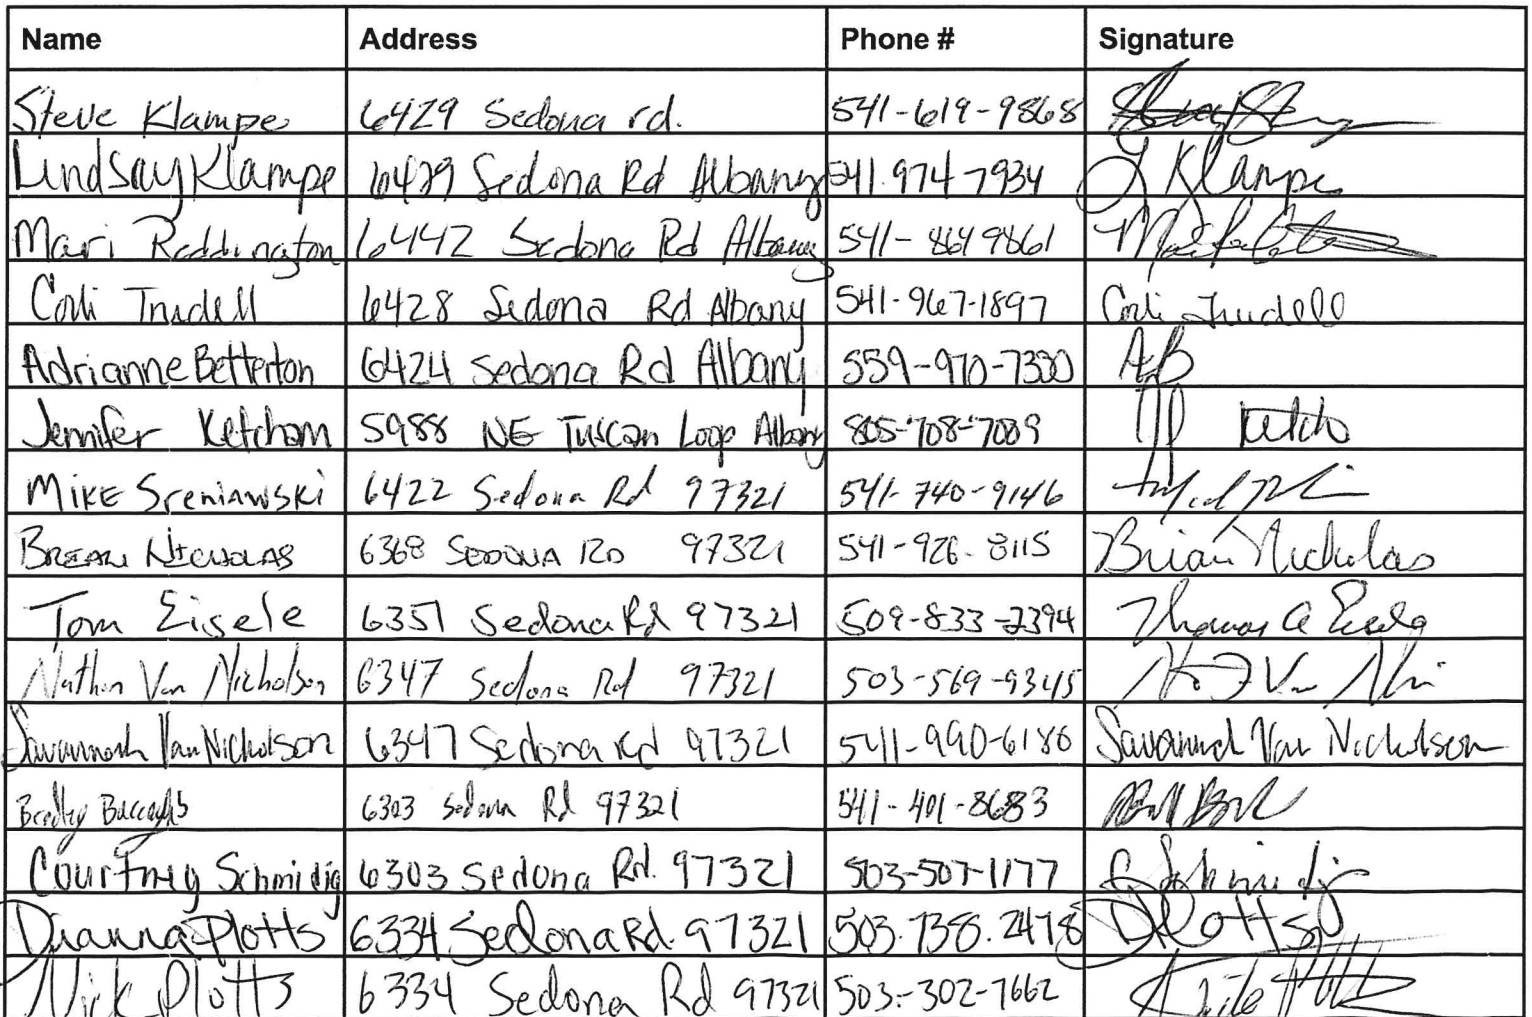 Name Address Phone # Signature
Steve Klampe 6429 Sedona rd. 541-619-9868
Lindsay Klampe 6429 Sedona Rd Albany 541.974-7934 L Klampe
Mari Reddington 6442 Sedona Rd Albany 541-864 9861
Corli Trudell 6428 Sedona Rd Albany 541-967-1897 Corli Trudell
Adrianne Betterton 6424 Sedona Rd Albany 559-970-7330 AB
Jennifer Ketcham 5988 NE Tuscan Loop Albany 805-708-7089
MIKE Sreniawski 6422 Sedona Rd 97321 541-740-9146
BRIAN NICHOLAS 6368 SEDONA RD 97321 541-926-8115 Brian Nicholas
Tom Eisele 6351 Sedona Rd 97321 509-833-2394 Thomas A Eisele
Nathan Van Nicholson 6347 Sedona Rd 97321 503-569-9345
Savannah Van Nicholson 6347 Sedona Rd 97321 541-990-6180 Savannah Van Nicholson
Bradley 6303 Sedona Rd 97321 541-401-8683
Courtney Schmidig 6303 Sedona Rd. 97321 503-507-1177 C Schmidig
Dianna Plotts 6334 Sedona Rd. 97321 503.738.2478 D Plotts
Nick Plotts 6334 Sedona Rd 97321 503-302-7662